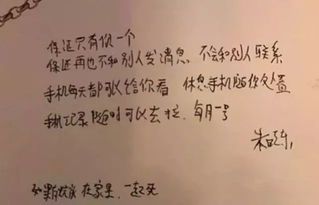 保证只有你一个
保证再也不和别人发消息 不会和别人联系
手机每天都可以给你看 休息手机随你处置
手机记录随时可以去拉，每月一号
在家里，一起死